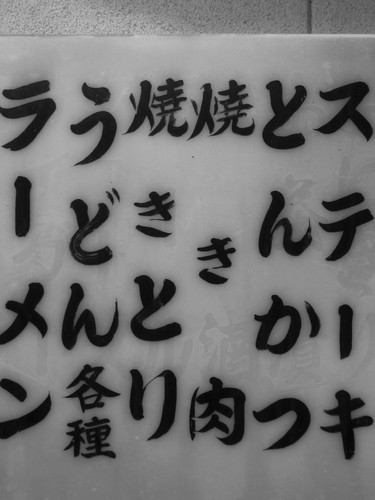 ステーキ
とんかつ
焼き肉
焼きとり
うどん各種
ラーメン